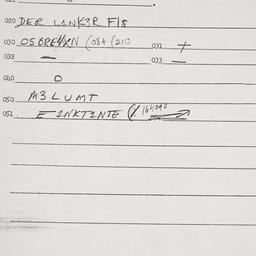 020 DER L1NK3R F/S
030 OSBRE4XN (084 (210 031 +
032 — 033 —
040 O
050 M3LUMT
051 E1NKT1NTE (% 164090